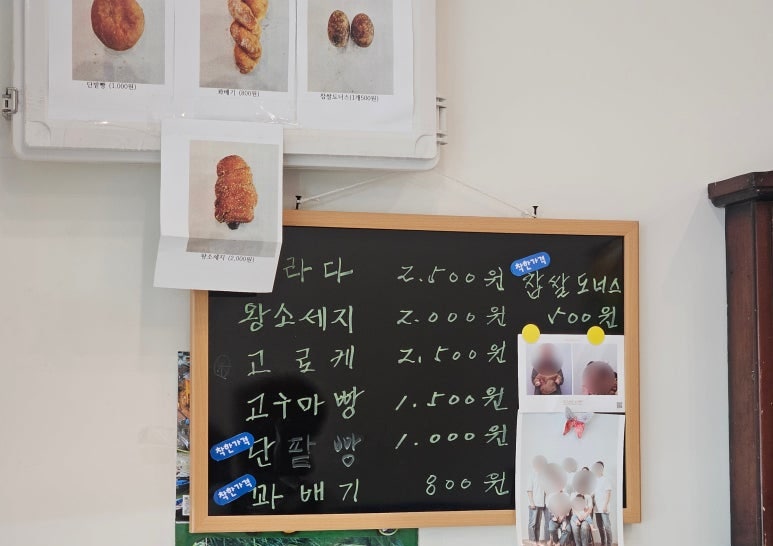 단팥빵 (1,000원)
꽈배기 (800원)
찹쌀도너스(1개500원)
왕소세지 (2,000원)
라다 2.500원
왕소세지 2.000원
고로케 2.500원
고구마빵 1.500원
착한가격
단팥빵 1.000원
착한가격
꽈배기 800원
착한가격
찹쌀도너스
500원